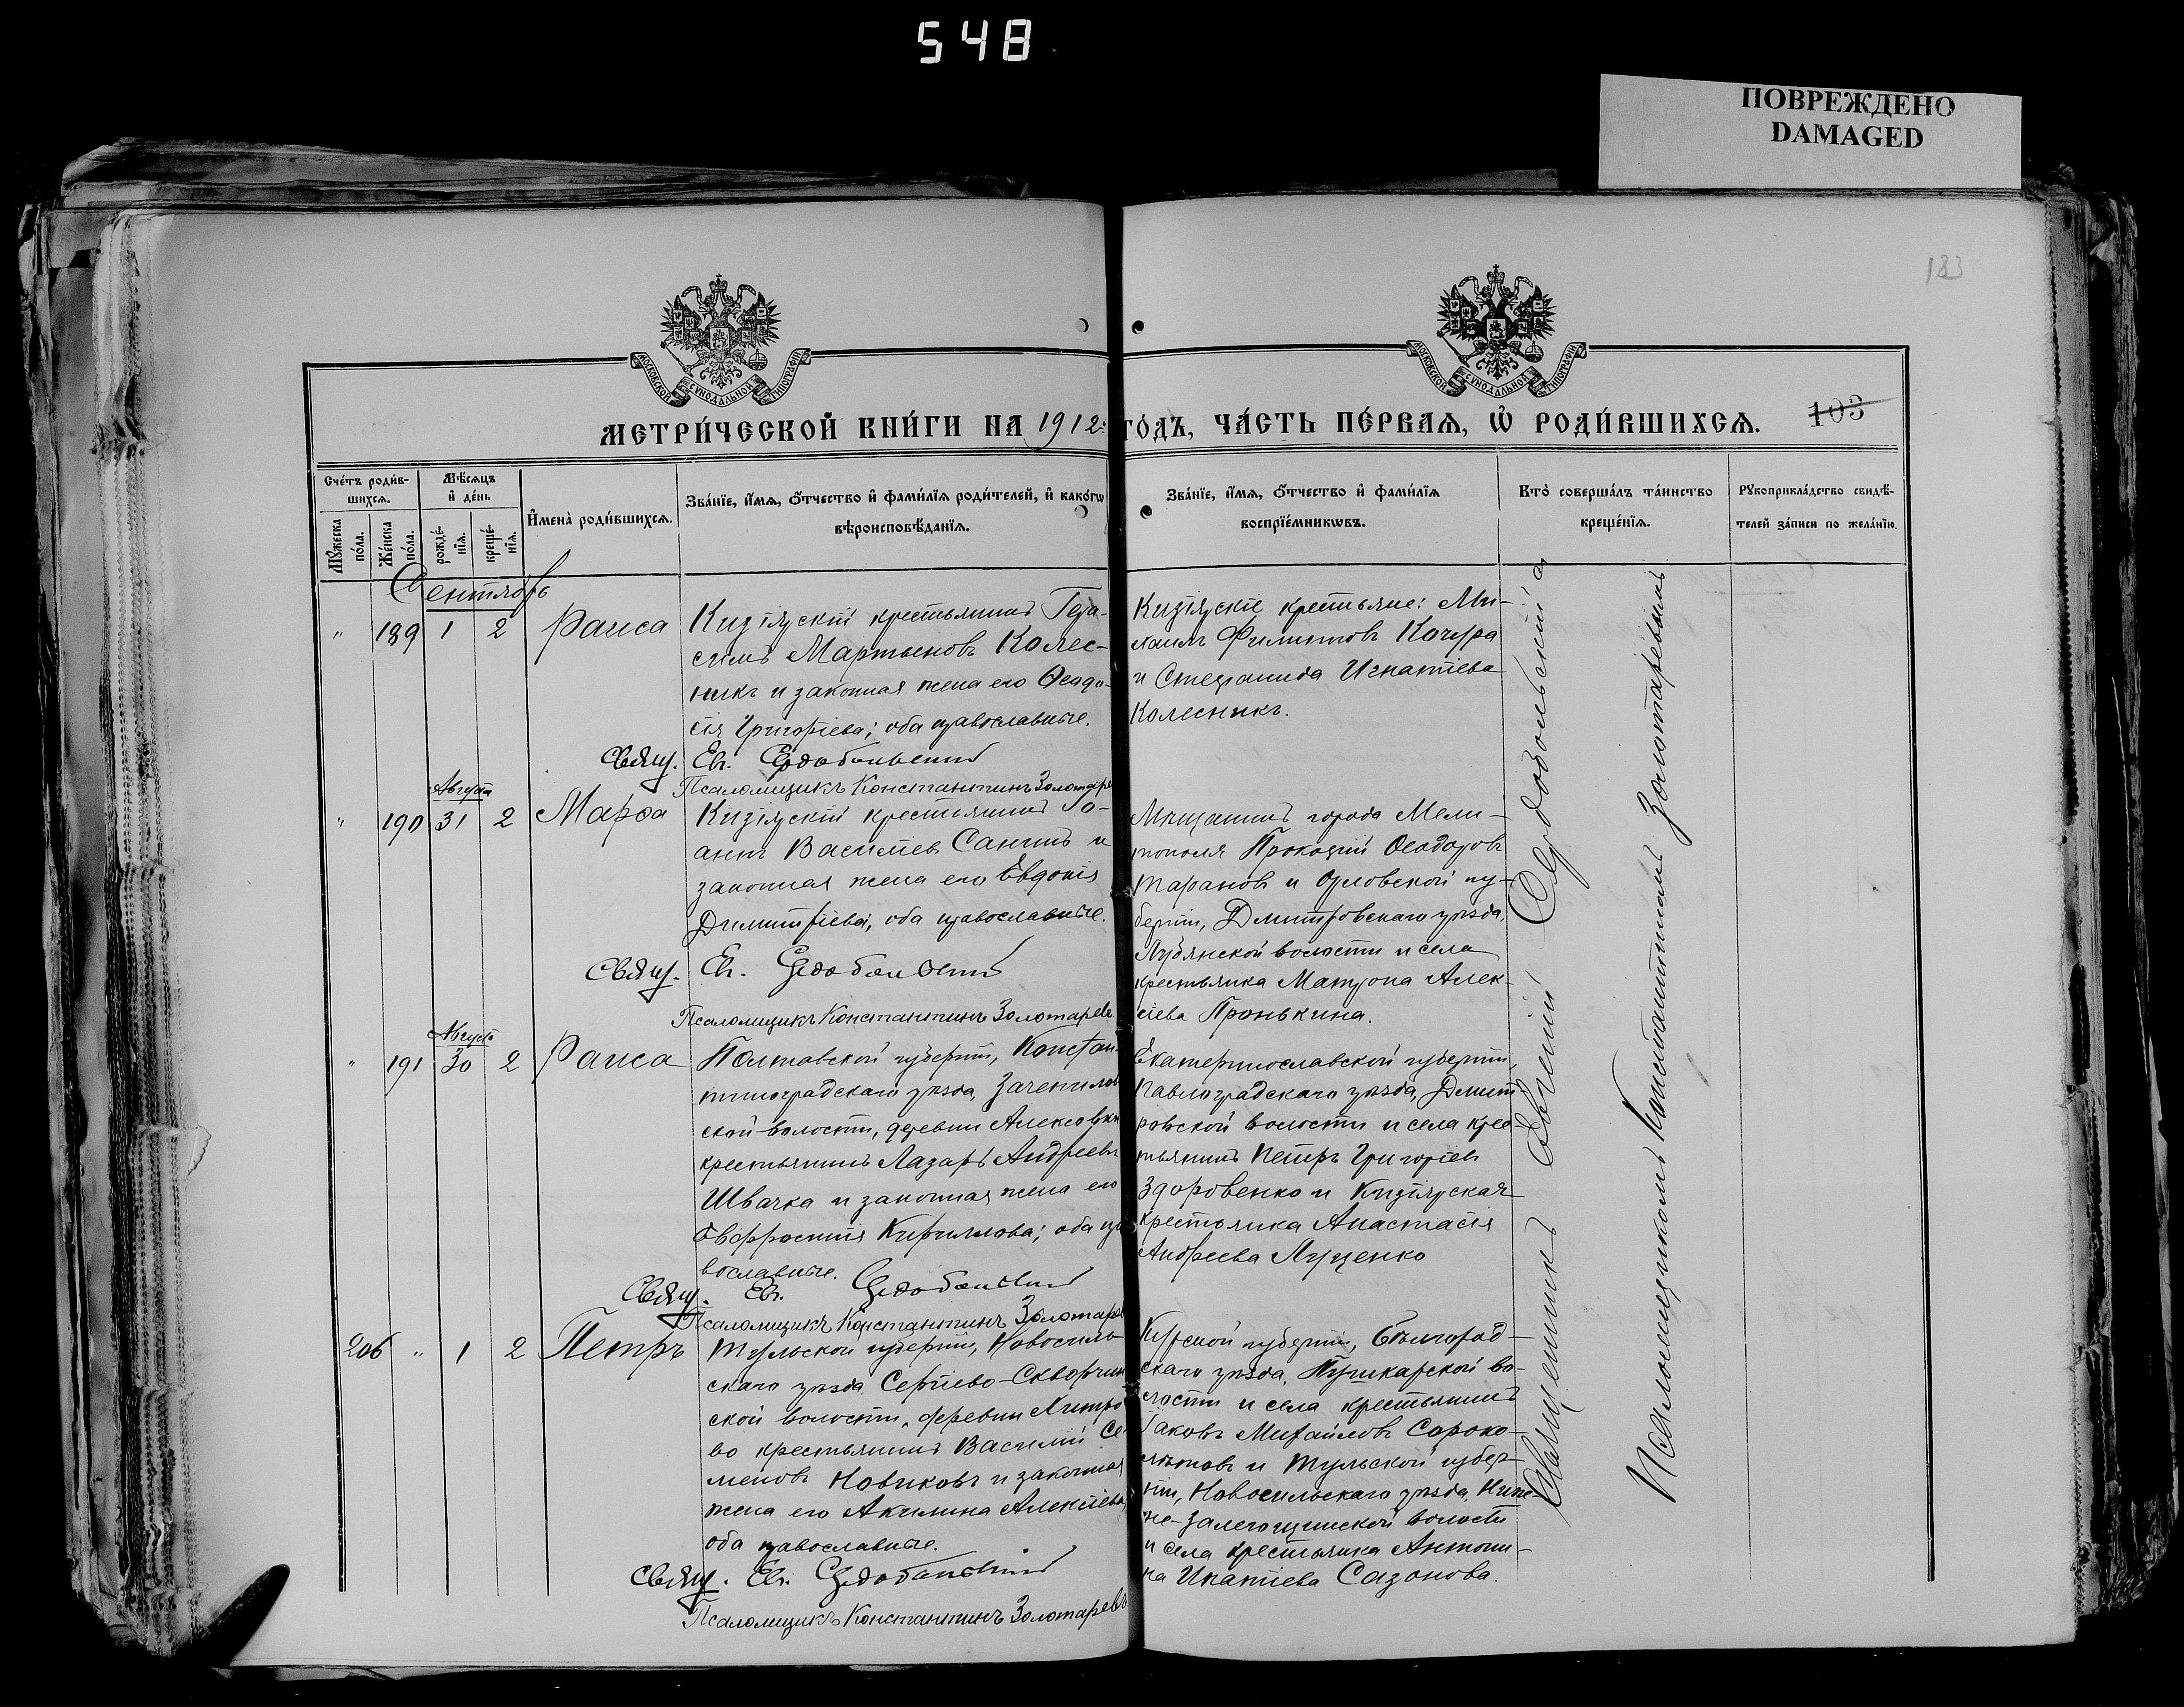 548
ПОВРЕЖДЕНО
DAMAGED
183
МОСКОВСКОЙ СѴНОДАЛЬНОЙ ТИПОГРАФІИ
МОСКОВСКОЙ СѴНОДАЛЬНОЙ ТИПОГРАФІИ
МЕТРИ́ЧЕСКОЙ КНИ́ГИ НА 1912 ГО́ДЪ, ЧА́СТЬ ПЕ́РВАѦ, Ѽ РОДИ́ВШИХСѦ.
103
Сче́тъ роди́в-
шихсѧ.
Мꙋ́жеска
по́ла.
Же́нска
по́ла.
Мѣ́сѧцъ
и҆ де́нь
рожде́-
нїѧ.
креще́-
нїѧ.
И҆мена̀ роди́вшихсѧ.
Зва́нїе, и҆́мѧ, ѻ҆́тчество и҆ фами́лїѧ роди́телей, и҆ како́гѡ
вѣроисповѣ́данїѧ.
Зва́нїе, и҆́мѧ, ѻ҆́тчество и҆ фами́лїѧ
воспрїе́мникѡвъ.
Кто̀ соверша́лъ та́инство
креще́нїѧ.
Рꙋкоприкла́дство свидѣ́-
телей за́писи по жела́нїю.
Сентябрь
" 189 1 2 Раиса
Кизіярскій крестьянинъ Гера-
симъ Мартыновъ Колес-
никъ и законная жена его Ѳеодо-
сія Григоріева; оба православные.
Свящ. Ев.
Псаломщикъ Константинъ Золотаре
Кизіярскіе крестьяне: Ми-
хаилъ Филипповъ Кочура
и Стефанида Игнатіева
Колесникъ.
Августа
" 190 31 2 Марѳа
Кизіярскій крестьянинъ Іо-
аннъ Василіев Санинъ и
законная жена его Евдокія
Димитріева, оба православные.
Свящ. Ев.
Псаломщикъ Константинъ Золотарев
Мѣщанинъ города Мели-
тополя Прокопій Ѳеодоровъ
Тарановъ и Орловской гу-
берніи, Дмитровскаго уѣзда,
Лубянской волости и села
крестьянка Матрона Алек-
сіева Пронькина.
Августа
" 191 30 2 Раиса
Полтавской губерніи, Констан-
тиноградскаго уѣзда, Зачепилов
ской волости, деревни Алексовки
крестьянинъ Лазарь Андреевъ
Швачка и законная жена его
Евфросинія Кириллова; оба пра
вославные.
Свящ. Ев.
Псаломщикъ Константинъ Золотарев
Екатеринославской губерніи,
Павлоградскаго уѣзда, Дмит-
ровской волости и села крес-
тьянинъ Петръ Григоріевъ
Здоровенко и Кизіярская
крестьянка Анастасія
Андреева Луценко
206 " 1 2 Петръ
Тульской губерніи, Новосиль-
скаго уѣзда, Сергіево-Скворчин
ской волости, деревни Хитро
во крестьянинъ Василій Се
меновъ Новиковъ и законная
жена его Акилина Алексіева,
оба православные.
Свящ. Ев.
Псаломщикъ Константинъ Золотаревъ
Курской губерніи, Бѣлгород-
скаго уѣзда, Пушкарской во-
лости и села крестьянинъ
Іаковъ Михайловъ Сороко-
лѣтовъ и Тульской губер-
ніи, Новосильскаго уѣзда, Ниж-
не-Залегощинской волости
и села крестьянка Антони-
на Ипатіева Сазонова.
Священникъ Евгеній
Псаломщикомъ Константиномъ Золотаревымъ